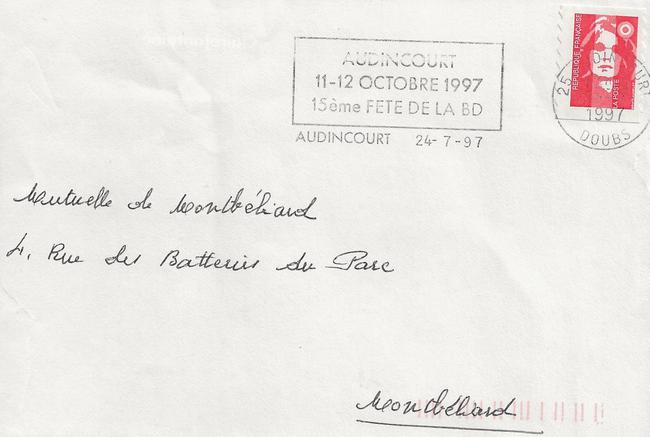 AUDINCOURT
11-12 OCTOBRE 1997
15ème FETE DE LA BD
AUDINCOURT 24-7-97
RÉPUBLIQUE FRANÇAISE
LA POSTE
25
1997
DOUBS
Mutuelle de Montbéliard
4, Rue des Batteries du Parc
Montbéliard